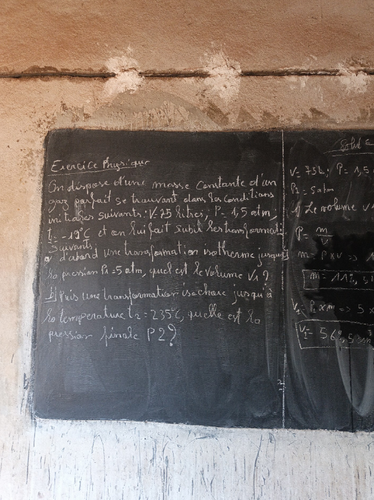 Exercice Physique
On dispose d'une masse constante d'un
gaz parfait se trouvant dans les conditions
initiales suivants: V=75 litres, P=1,5 atm,
t=-19°C et on lui fait subir les transformat
suivants.
a) d'abord une transformation isotherme jusqu'à
la pression P1=5 atm, quel est le volume V1?
b) Puis une transformation isochore jusqu'à
la température t2=235°C, quelle est la
pression finale P2?
V=75L; P=1,5
P1=5atm
1) Le volume V
P=m/V
m=P×V ⇒
m=112,5
V1=P1×m ⇒ 5 x
V1=56